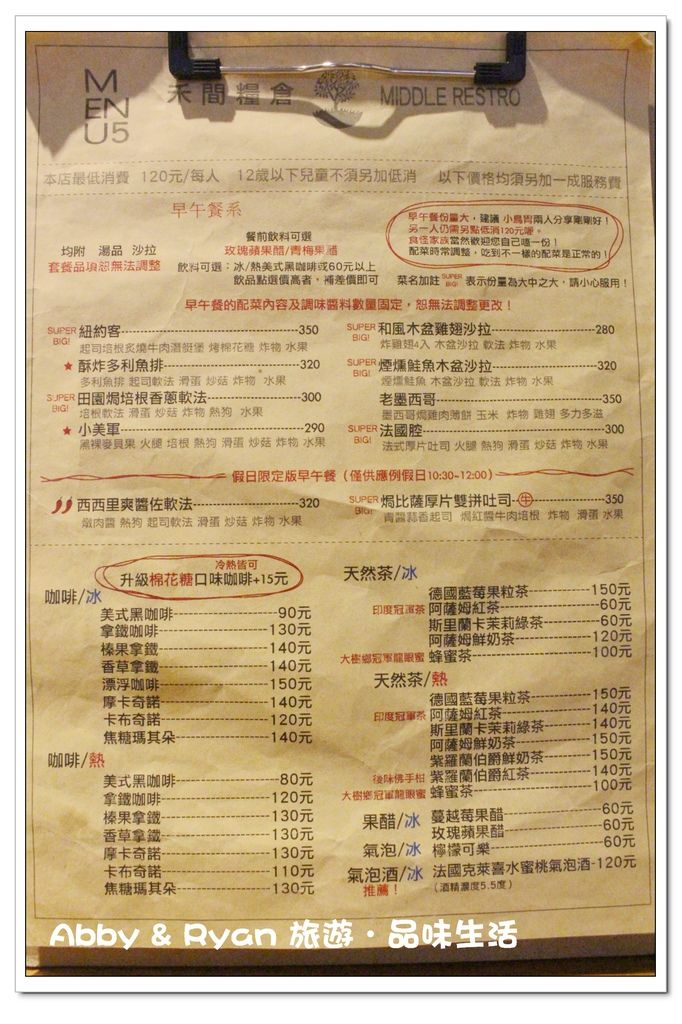 MENU5
禾間糧倉 MIDDLE RESTRO
本店最低消費 120元/每人 12歲以下兒童不須另加低消 以下價格均須另加一成服務費
早午餐系
均附 湯品 沙拉
套餐品項恕無法調整
餐前飲料可選
玫瑰蘋果醋/青梅果醋
飲料可選：冰/熱美式黑咖啡或60元以上
飲品點選價高者，補差價即可
早午餐份量大，建議 小鳥胃兩人分享剛剛好！
另一人仍需另點低消120元喔。
食怪家族當然歡迎您自己嗑一份！
配菜時常調整，吃到不一樣的配菜是正常的！
菜名加註 SUPER BIG! 表示份量為大中之大，請小心服用！
早午餐的配菜內容及調味醬料數量固定，恕無法調整更改！
SUPER BIG! 紐約客 350
起司培根炙燒牛肉潛艇堡 烤棉花糖 炸物 水果
★ 酥炸多利魚排 320
多利魚排 起司軟法 滑蛋 炒菇 炸物 水果
SUPER BIG! 田園焗培根香蔥軟法 300
培根軟法 滑蛋 炒菇 炸物 熱狗 水果
★ 小美軍 290
黑裸麥貝果 火腿 培根 熱狗 滑蛋 炒菇 炸物 水果
SUPER BIG! 和風木盆雞翅沙拉 280
炸雞翅4入 木盆沙拉 軟法 炸物 水果
SUPER BIG! 煙燻鮭魚木盆沙拉 320
煙燻鮭魚 木盆沙拉 軟法 炸物 水果
老墨西哥 350
墨西哥焗雞肉薄餅 玉米 炸物 雞翅 多力多滋
SUPER BIG! 法國腔 300
法式厚片吐司 火腿 熱狗 滑蛋 炒菇 炸物 水果
假日限定版早午餐（僅供應例假日10:30~12:00）
西西里爽醬佐軟法 320
燉肉醬 熱狗 起司軟法 滑蛋 炒菇 炸物 水果
SUPER BIG! 焗比薩厚片雙拼吐司 牛 350
青醬蒜香起司 焗紅醬牛肉培根 炸物 滑蛋 水果
冷熱皆可
升級棉花糖口味咖啡+15元
咖啡/冰
美式黑咖啡 90元
拿鐵咖啡 130元
榛果拿鐵 140元
香草拿鐵 140元
漂浮咖啡 150元
摩卡奇諾 140元
卡布奇諾 120元
焦糖瑪其朵 140元
咖啡/熱
美式黑咖啡 80元
拿鐵咖啡 120元
榛果拿鐵 130元
香草拿鐵 130元
摩卡奇諾 130元
卡布奇諾 110元
焦糖瑪其朵 130元
天然茶/冰
德國藍莓果粒茶 150元
印度冠軍茶 阿薩姆紅茶 60元
斯里蘭卡茉莉綠茶 60元
阿薩姆鮮奶茶 120元
大樹鄉冠軍龍眼蜜 蜂蜜茶 100元
天然茶/熱
德國藍莓果粒茶 150元
印度冠軍茶 阿薩姆紅茶 140元
斯里蘭卡茉莉綠茶 140元
阿薩姆鮮奶茶 150元
紫羅蘭伯爵鮮奶茶 150元
後味佛手柑 紫羅蘭伯爵紅茶 140元
大樹鄉冠軍龍眼蜜 蜂蜜茶 100元
果醋/冰 蔓越莓果醋 60元
玫瑰蘋果醋 60元
氣泡/冰 檸檬可樂 60元
氣泡酒/冰 法國克萊喜水蜜桃氣泡酒-120元
推薦！ （酒精濃度5.5度）
Abby & Ryan 旅遊・品味生活